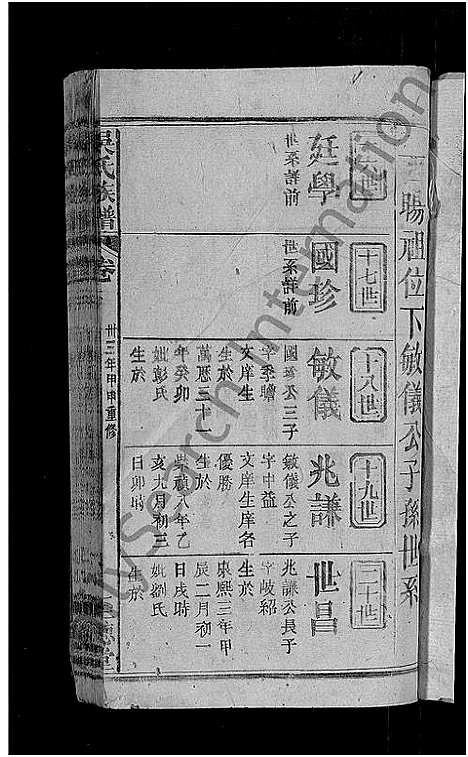 賜祖位下敏儀公子孫世系
十六世
廷學
世系詳前
十七世
國珍
世系詳前
十八世
敏儀
國珍公三子
字季瞻
文庠生
生於
萬歷三十一
年癸卯
妣彭氏
生於
十九世
兆謙
敏儀公之子
字中益
文庠生庠名
優勝
生於
崇禎八年乙
亥九月初三
日卯時
二十世
世昌
兆謙公長子
字岐紹
生於
康熙三年甲
辰二月初一
日戌時
妣劉氏
生於
吳氏族譜
卷
卅三年甲申重修
MySearch International